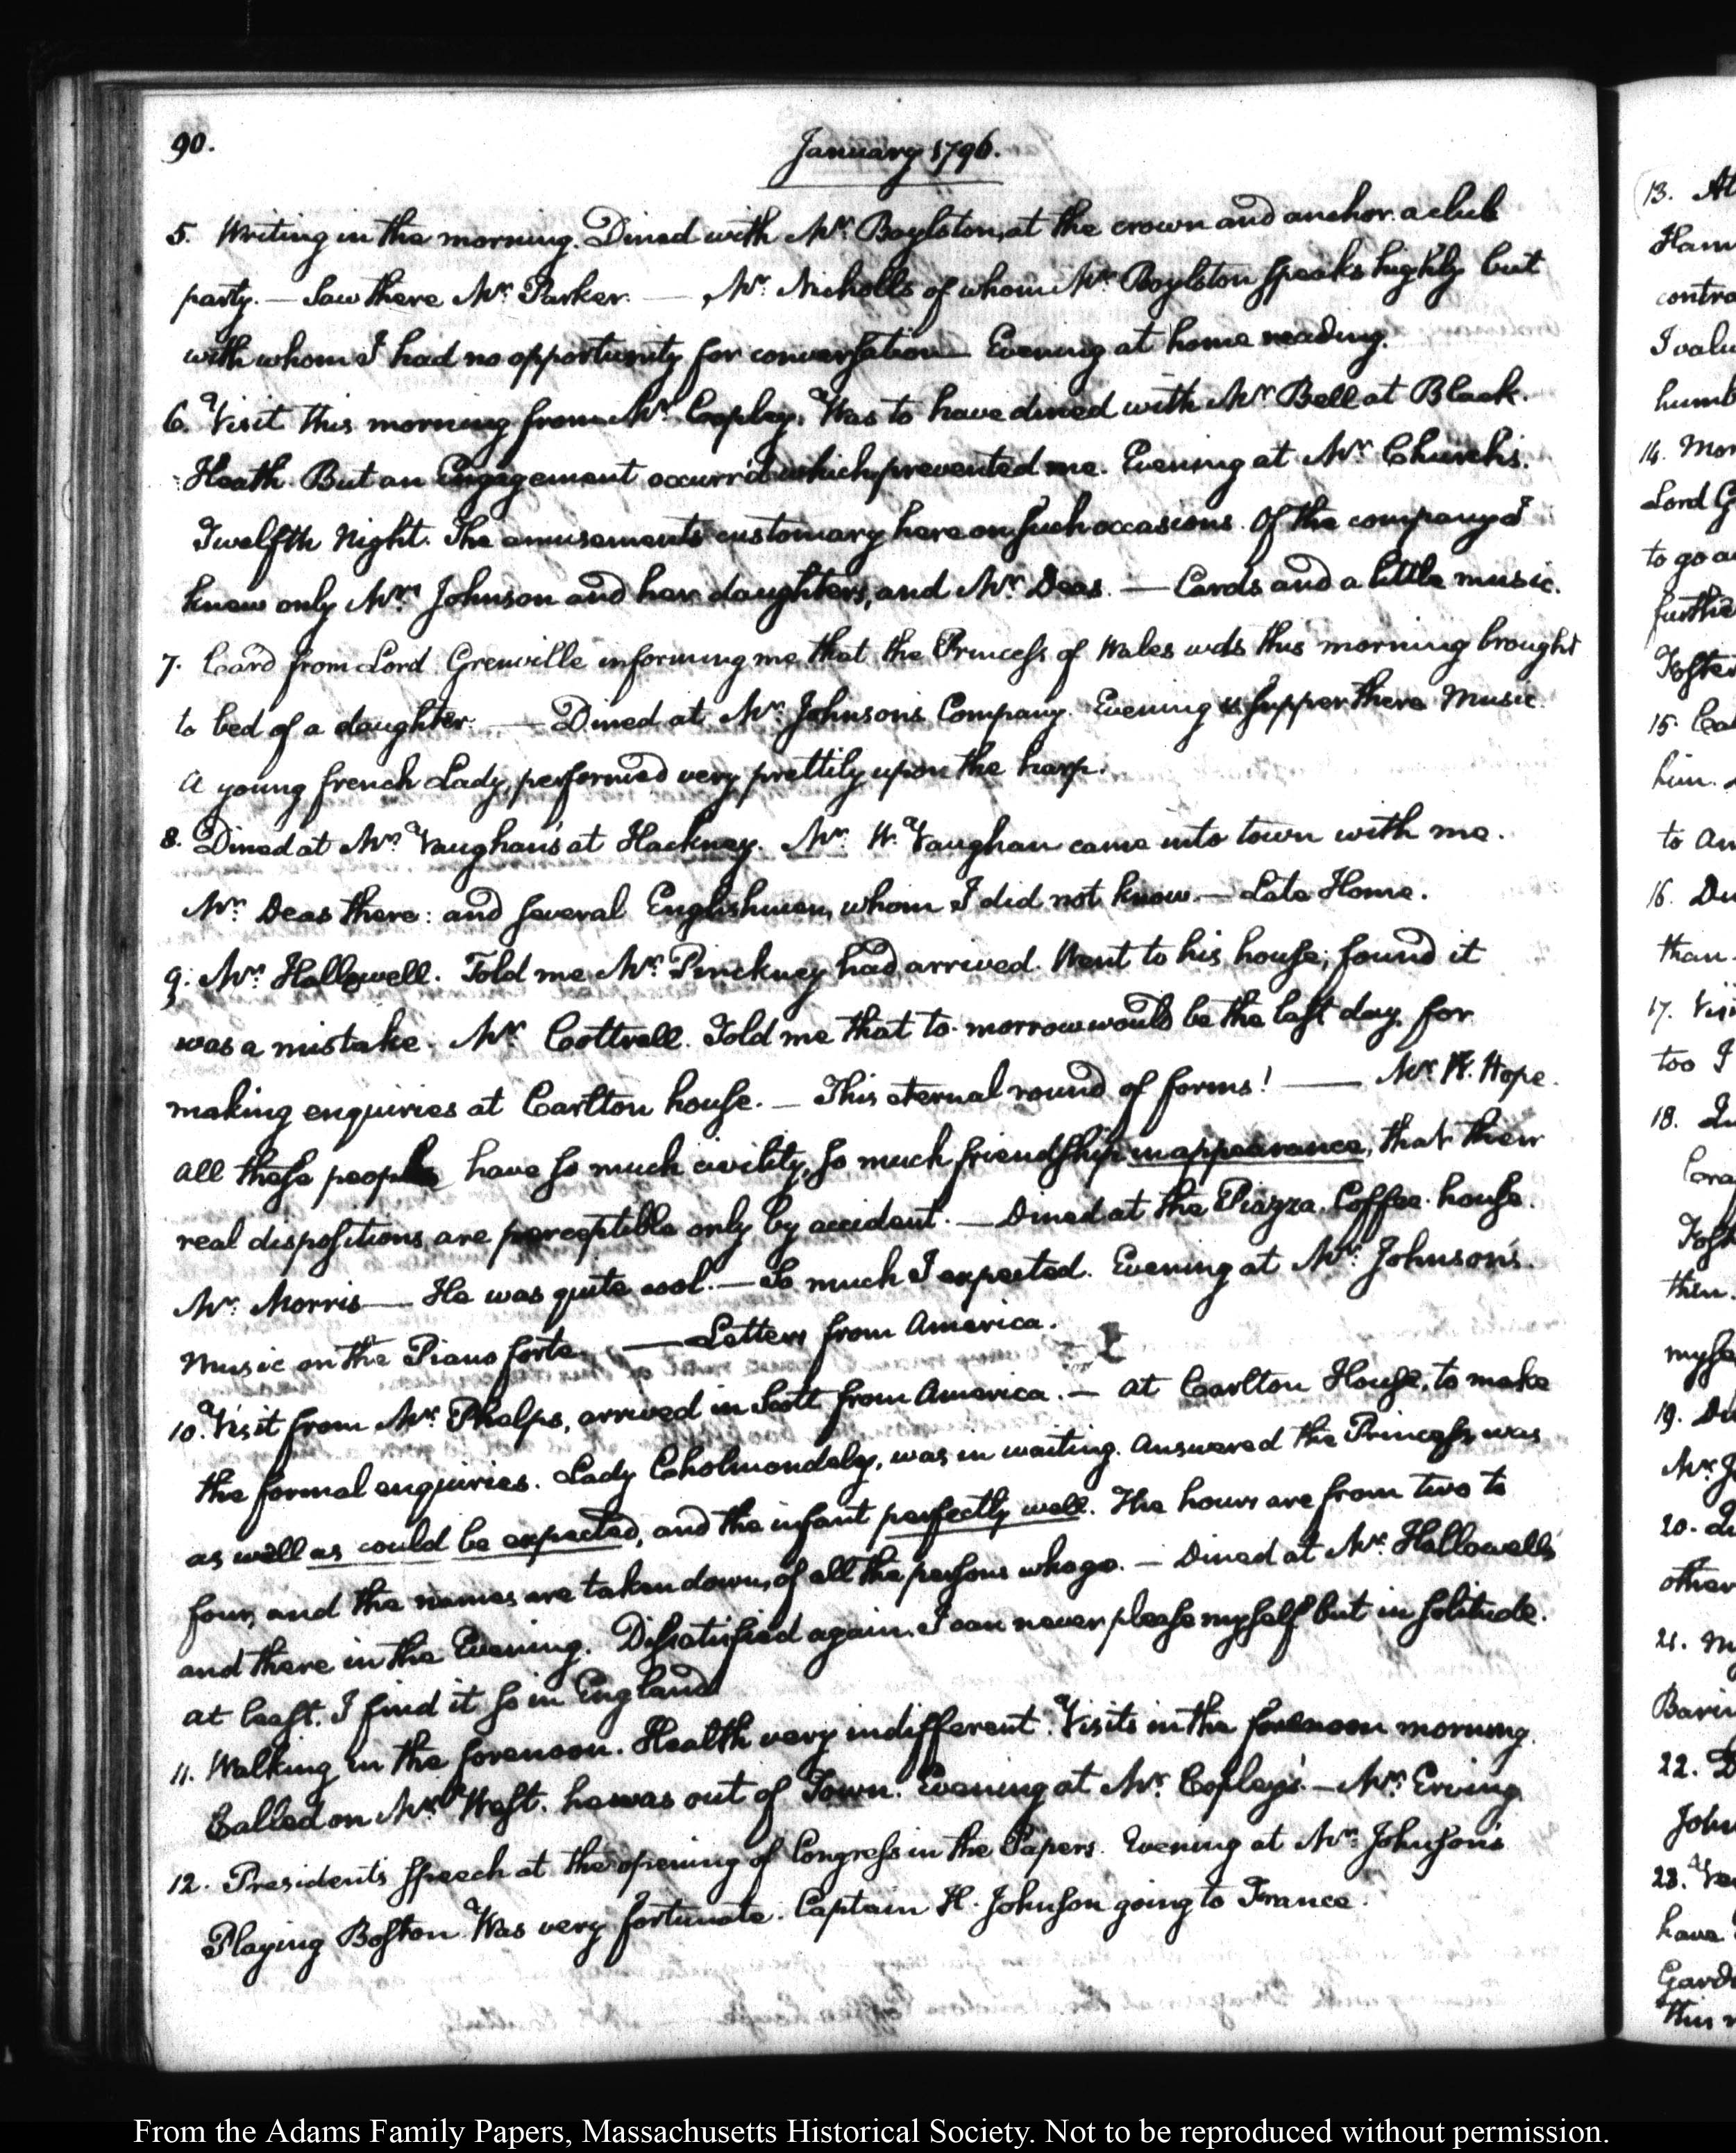 90.
January 1796.
5. Writing in the morning. Dined with Mr. Boylston, at the crown and anchor. a club
party. — Saw there Mr. Parker. — Mr. Nicholls of whom Mr. Boylston speaks highly but
with whom I had no opportunity for conversation — Evening at home reading.
6. Visit this morning from Mr. Copley. Was to have dined with Mr. Bell at Black.
Heath. But an Engagement occurr'd which prevented me. Evening at Mr. Church's.
Twelfth Night. The amusements customary here on such occasions. Of the company I
knew only Mrs. Johnson and her daughters, and Mr. Deas. — Cards and a little music.
7. Card from Lord Grenville informing me that the Princess of Wales was this morning brought
to bed of a daughter. — Dined at Mr. Johnson's Company. Evening & supper there Music.
A young french Lady, performed very prettily upon the harp.
8. Dined at Mr. Vaughan's at Hackney. Mr. W. Vaughan came into town with me.
Mr. Deas there: and several Englishmen, whom I did not know. — Late Home.
9. Mr. Hallowell. Told me Mr. Pinckney had arrived. Went to his house; found it
was a mistake. Mr. Cottrell. Told me that to-morrow would be the last day for
making enquiries at Carlton house. — This eternal round of forms! — Mr. H. Hope.
all these people have so much civility, so much friendship in appearance, that their
real dispositions, are perceptible only by accident. — Dined at the Piazza. Coffee-house.
Mr. Morris — He was quite cool. — So much I expected. Evening at Mr. Johnson's.
Music on the Piano forte. — Letters from America.
10. Visit from Mr. Phelps, arrived in Scott from America. — at Carlton House, to make
the formal enquiries. Lady Choholmondeley, was in waiting. Answered the Princess, was
as well as could be expected, and the infant perfectly well. The hours are from two to
four, and the names are taken down, of all the persons who go. — Dined at Mr. Hallowell's
and there in the Evening. Dissatisfied again. I can never please myself but in solitude.
at least. I find it so in England
11. Walking in the forenoon. Health very indifferent. Visits in the forenoon morning.
Called on Mr. West. he was out of Town. Evening at Mr. Copley's. — Mr. Erving.
12. Presidents speech at the opening of Congress in the Papers. Evening at Mr. Johnson's
Playing Boston. Was very fortunate. Captain H. Johnson going to France.
13. At
Ham
contra
I valu
humb
14. Mor
Lord G
to go a
further
Foster
15. Ca
him.
to an
16. Di
than
17. Vis
too I
18.
then.
myse
19. Di
Mr. J
20.
other
21. M
Barin
22. D
John
23.
have
Gard
this
From the Adams Family Papers, Massachusetts Historical Society. Not to be reproduced without permission.